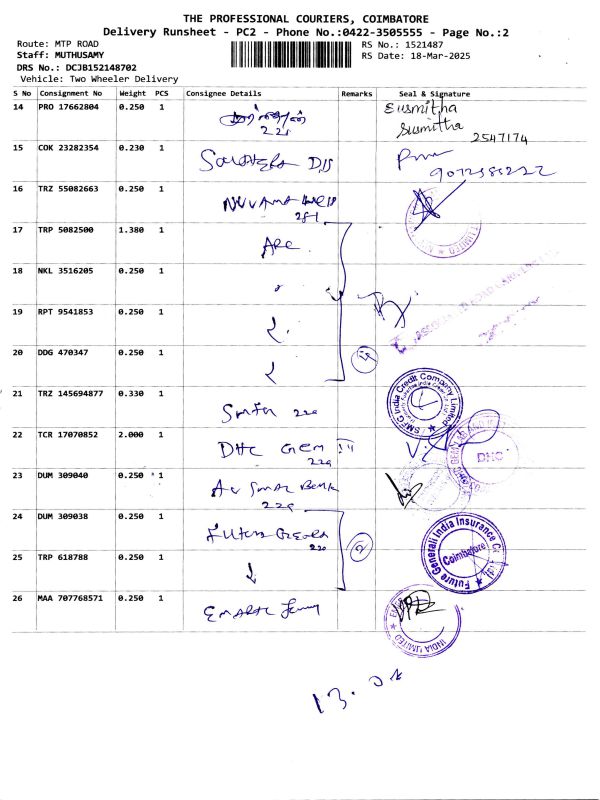 THE PROFESSIONAL COURIERS, COIMBATORE
Delivery Runsheet - PC2 - Phone No.:0422-3505555 - Page No.:2
Route: MTP ROAD
RS No.: 1521487
Staff: MUTHUSAMY
RS Date: 18-Mar-2025
DRS No.: DCJB152148702
Vehicle: Two Wheeler Delivery
S No Consignment No Weight PCS Consignee Details Remarks Seal & Signature
14 PRO 17662804 0.250 1 221 Susmitha
2547174
15 COK 23282354 0.230 1
16 TRZ 55082663 0.250 1
17 TRP 5082500 1.380 1 ARC
18 NKL 3516205 0.250 1
19 RPT 9541853 0.250 1
20 DDG 470347 0.250 1 4
21 TRZ 145694877 0.330 1 220 SMFG India Credit Company Limited
22 TCR 17070852 2.000 1 DHC Gem 229 DHC
23 DUM 309040 0.250 1 Au Smal Bank 229
24 DUM 309038 0.250 1 Future Genera 220 2 Future Generali India Insurance Co. Ltd. Coimbatore
25 TRP 618788 0.250 1
26 MAA 707768571 0.250 1 INDIA LIMITED
13.